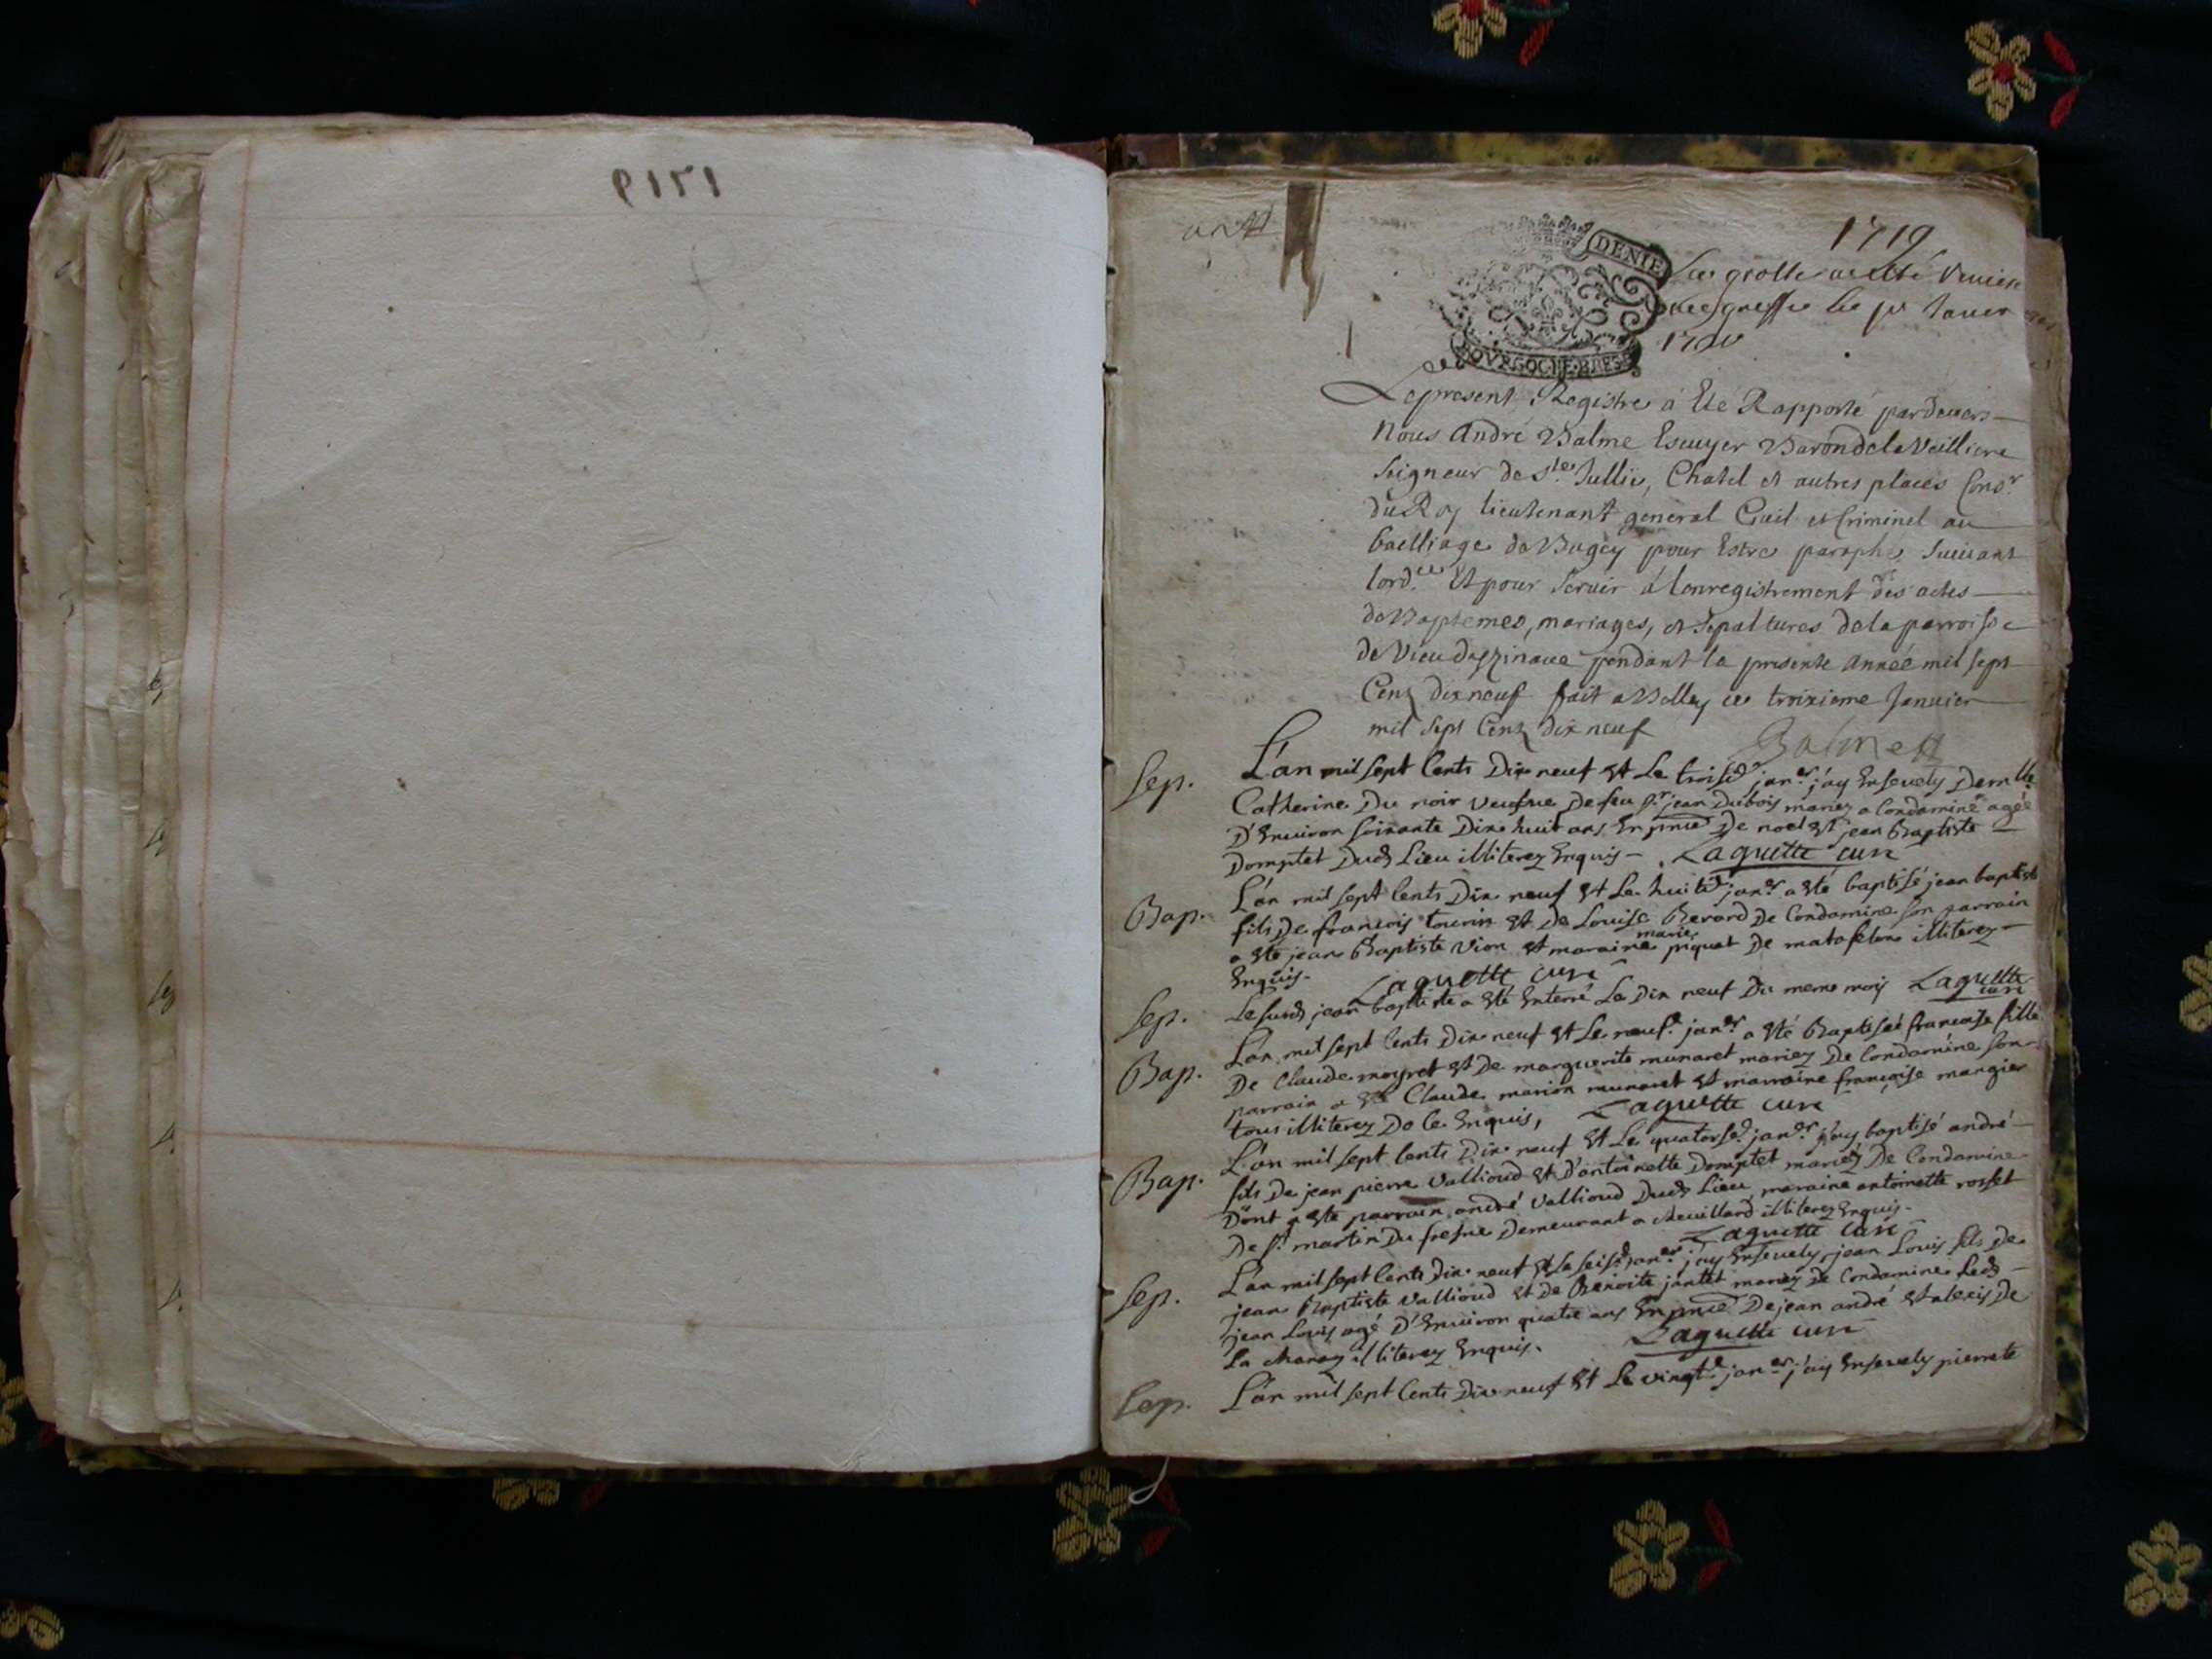 1719
1719
DENIE
BOVRGOGNE·BRES
La grosse a esté
au greffe le pr Janvier
1720
Le present Registre a Eté Rapporté pardevers
Nous André Balme Escuyer Baron de la Veilliere
Seigneur de Ste Jullie, Chatel et autres places Conser
du Roy lieutenant general Civil et Criminel au
bailliage de Bugey pour Estre paraphé suivant
lordce Et pour servir a lenregistrement des actes
de Baptemes, mariages, et sepaltures de la parroisse
de Vieu dizzinave pendant la presente année mil sept
Cent dix neuf fait a Belley ce troixieme Janvier
mil sept Cent dix neuf
Balme
Sep. L'an mil sept Cents Dix neuf Et Le troise janer j'ay Ensevely Demlle
Catherine Du noir veufve De feu sr jean Dubois mariez a Condamine agée
D'Environ soixante Dix huit ans En pnce De noel Et jean Baptiste
Domptet Dud Lieu illiterez Enquis – Laguette curé
Bap. L'an mil sept Cents Dix neuf Et Le huite janer a Esté baptisé jean baptiste
fils De francois tourin Et de Louise Berard De Condamine son parrain
a Esté jean Baptiste Vion Et maraine marie piquet De matafelon illiterez
Enquis. Laguette curé
Sep. Le susd jean baptiste a Esté Enterré Le Dix neuf Du meme mois Laguette curé
Bap. L'an mil sept Cents Dix neuf Et Le neufe janer a Eté Baptisée francoise fille
De Claude moyret Et De marguerite munaret mariez De Condamine son
parrain a Esté Claude marion munaret Et marraine françoise mangier
tous illiterez De ce Enquis, Laguette curé
Bap. L'an mil sept Cents Dix neuf Et Le quatorse janer j'ay baptisé andré
fils De jean pierre Vallioud Et D'antoinette Domptet mariez De Condamine
Dont a Esté parrain andré Vallioud Dud Lieu maraine antoinette rosset
De st martin Du fresne Demeurant a chevillard illiterez Enquis.
Laguette curé
Sep. L'an mil sept Cents Dix neuf Et Le seise janer j'ay Ensevely jean Louis fils De
jean Baptiste Vallioud Et de Benoite jantet mariez De Condamine Led
jean Louis agé D'Environ quatre ans En pnce De jean andré Et alexis De
La charez illiterez Enquis. Laguette curé
Sep. L'an mil sept Cents Dix neuf Et Le vingte janer j'ay Ensevely pierrete